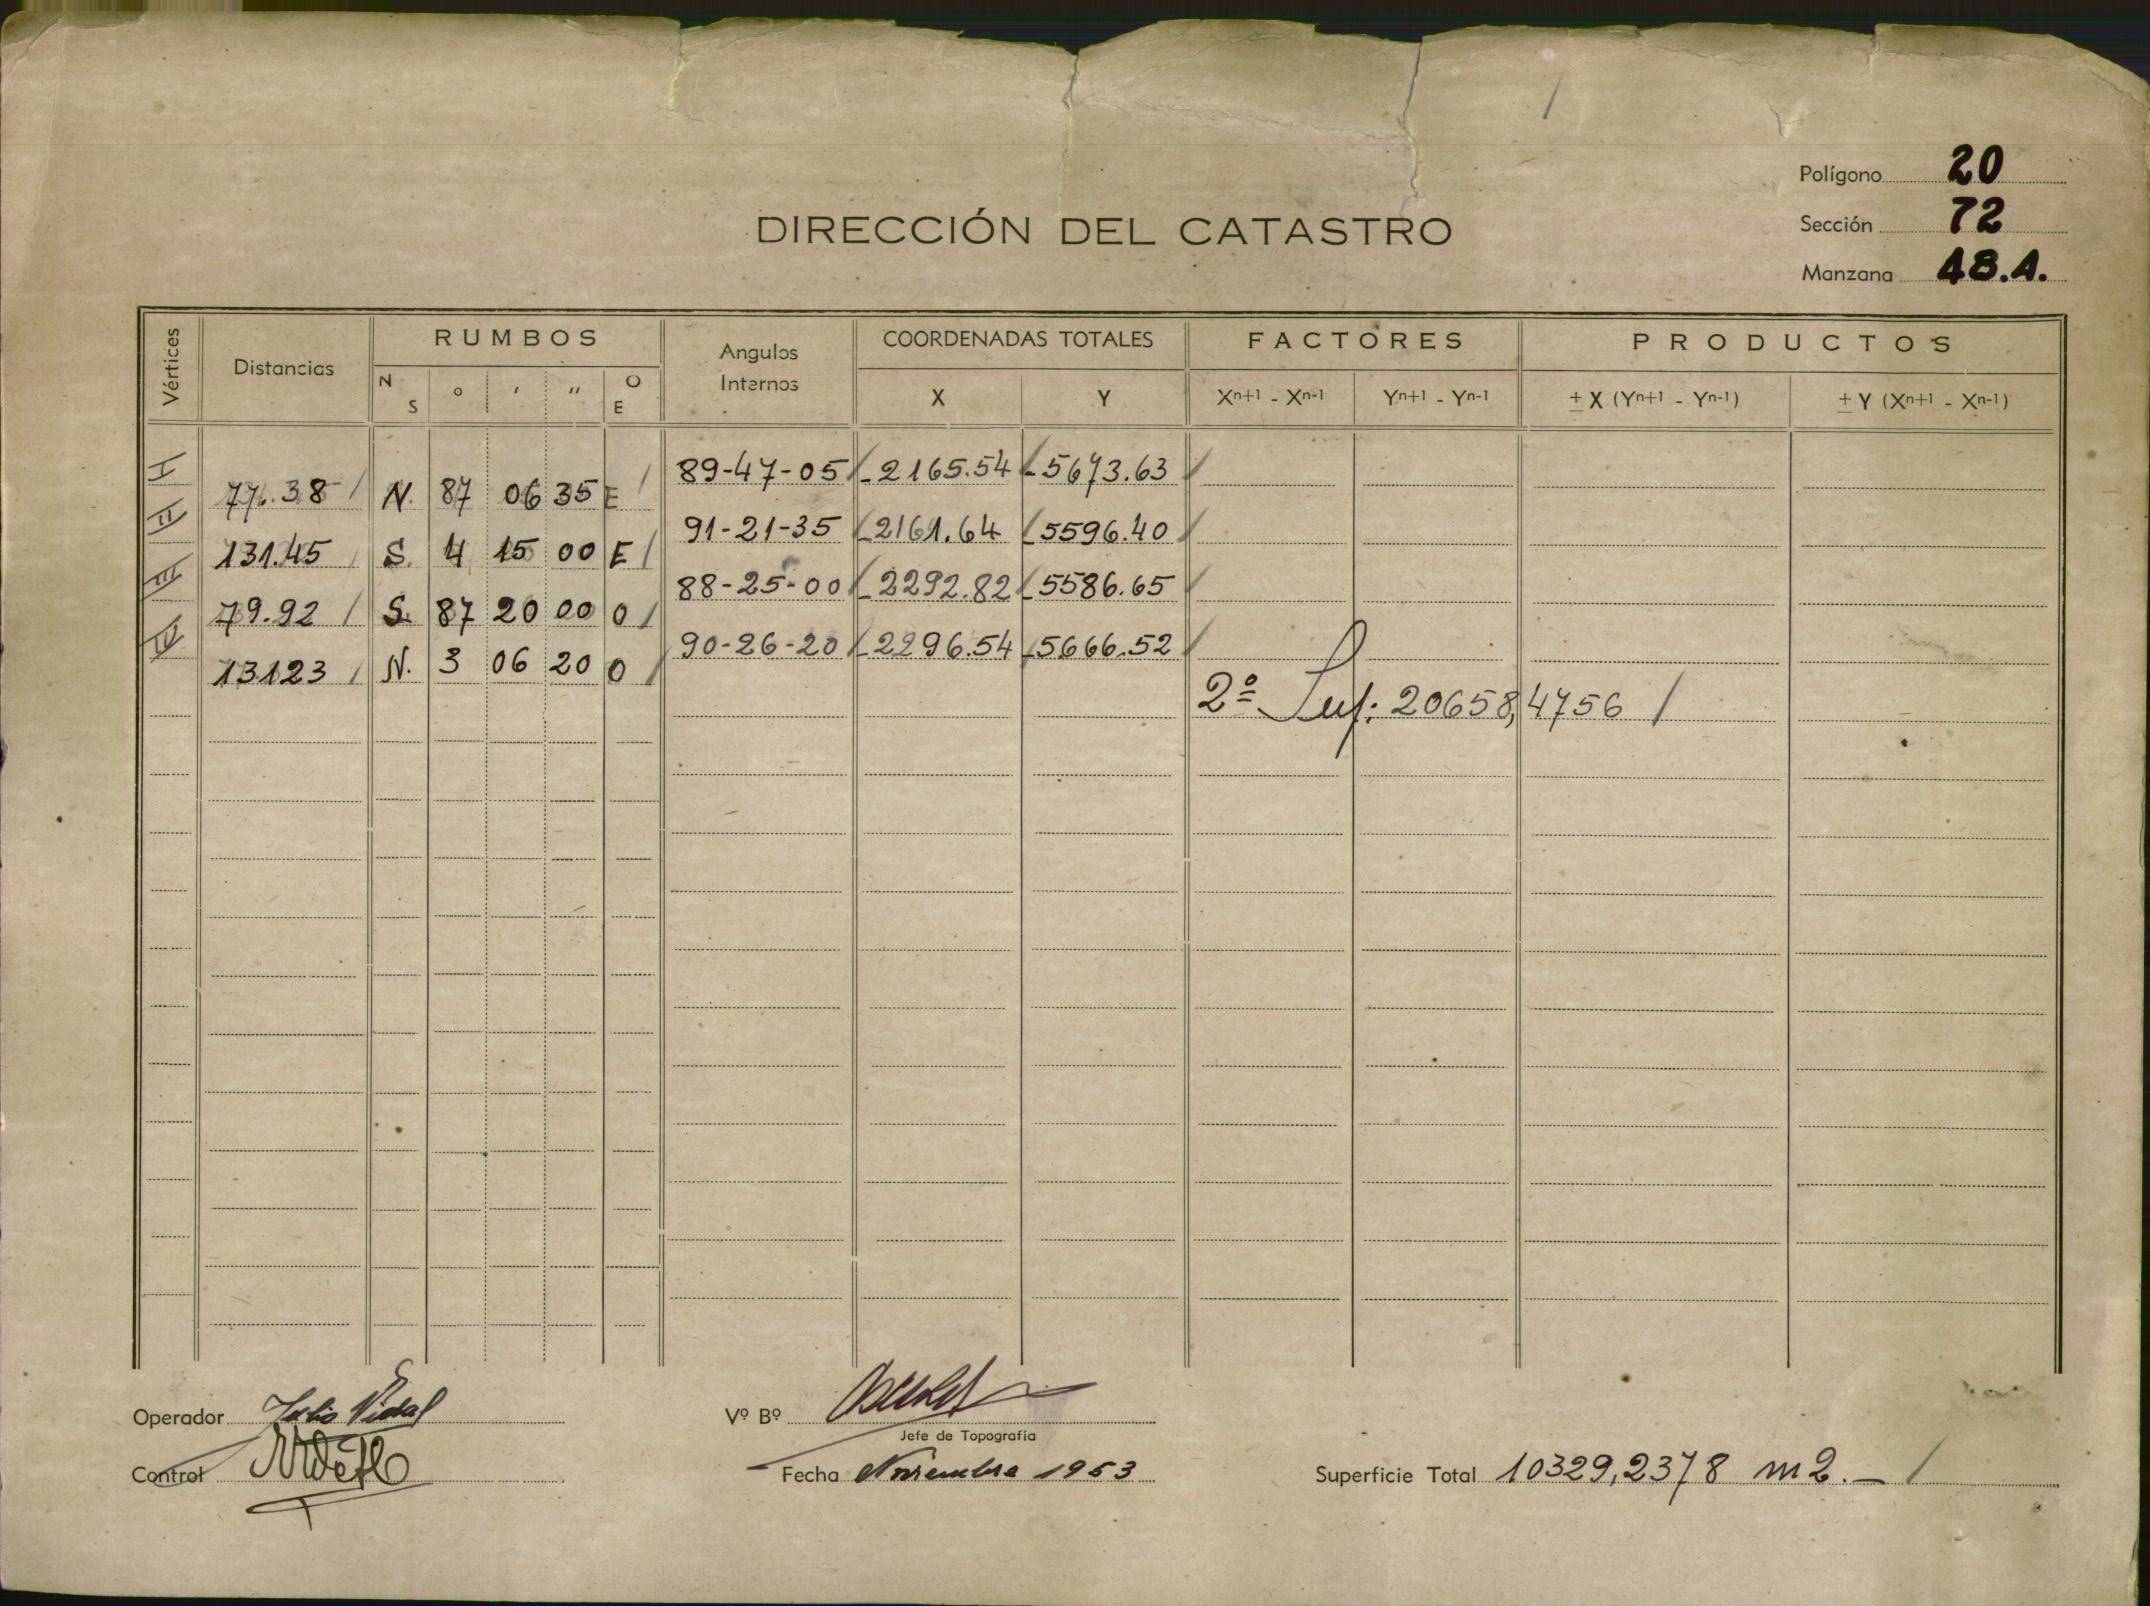 Polígono 20
Sección 72
Manzana 48.A.
DIRECCIÓN DEL CATASTRO
Vértices Distancias RUMBOS Angulos Internos COORDENADAS TOTALES FACTORES PRODUCTOS
N S ° ' '' O E X Y Xn+1 - Xn-1 Yn+1 - Yn-1 ± X (Yn+1 - Yn-1) ± Y (Xn+1 - Xn-1)
I 89-47-05 -2165.54 -5673.63
77.38 N. 87 06 35 E
II 91-21-35 -2161.64 -5596.40
131.45 S. 4 15 00 E
III 88-25-00 -2292.82 -5586.65
79.92 S. 87 20 00 O
IV 90-26-20 -2296.54 -5666.52
131.23 N. 3 06 20 O
2º Sup: 20658,4756
Operador Julio Vidal Vº Bº
Jefe de Topografía
Control Fecha Noviembre 1953 Superficie Total 10329,2378 m2.-